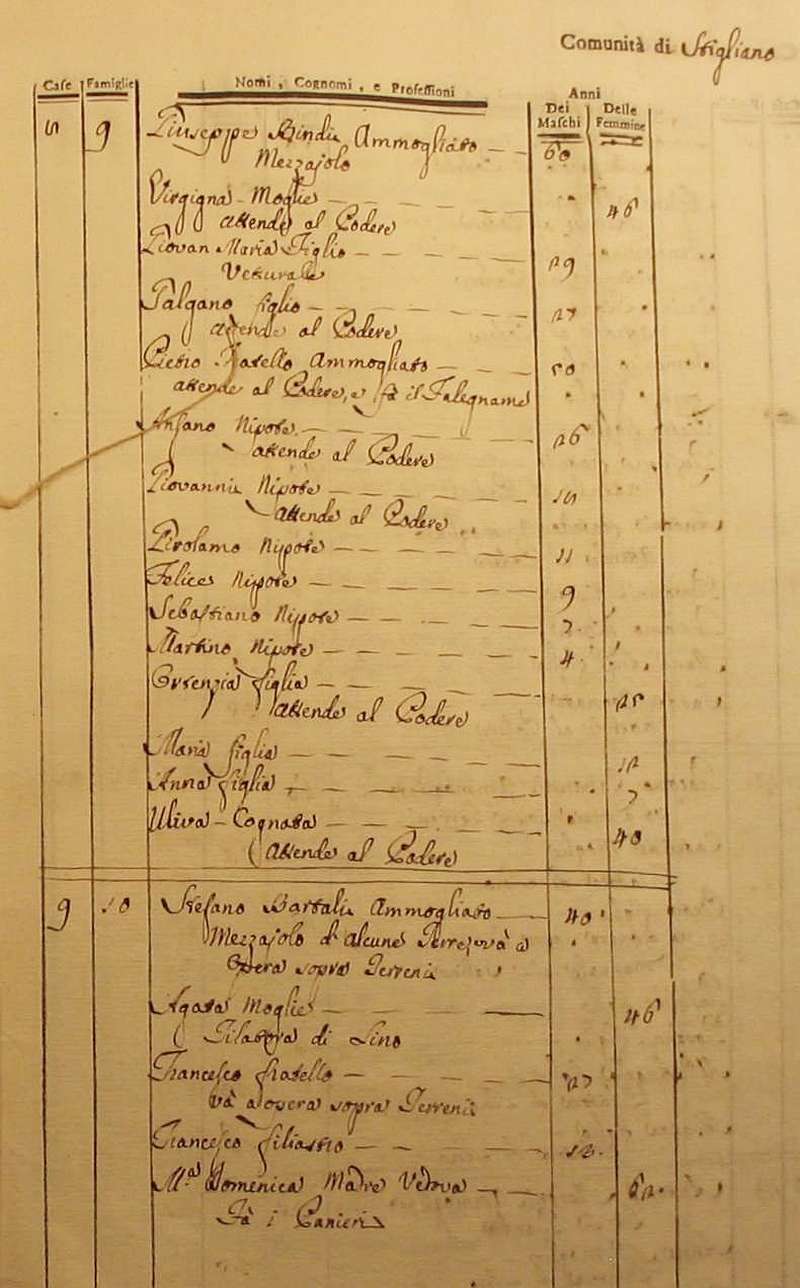 Comunità di Stigliano
Case Famiglie Nomi, Cognomi, e Professioni Anni
Dei Maschi Delle Femmine
9 Giuseppe Ammogliato 60
Mezzajolo
Virginia Moglie 46
attende al Podere
Giovan Maria Figlio 29
Galgano figlio 27
attende al Podere
Pietro Fratello Ammogliato 50
attende al Podere, e fà il Falegname
Ansano Nipote 26
attende al Podere
Giovanni Nipote 15
attende al Podere
Girolamo Nipote 11
Felice Nipote 9
Sebastiano Nipote 7
Martino Nipote 4
Orsenzia figlia 25
attende al Podere
Maria figlia 12
Anna figlia 7
Uliva Cognata 40
attende al Podere
9 10 Stefano Bartali Ammogliato 40
Mezzajolo d'alcune Terre, và a
Opera sopra Terreni
Agata Moglie 46
di Lino
Francesco fratello 27
Và a opera sopra Terreni
Francesco figliastro 12
M.ª Domenica Madre Vedova 62
Fà i Panieri